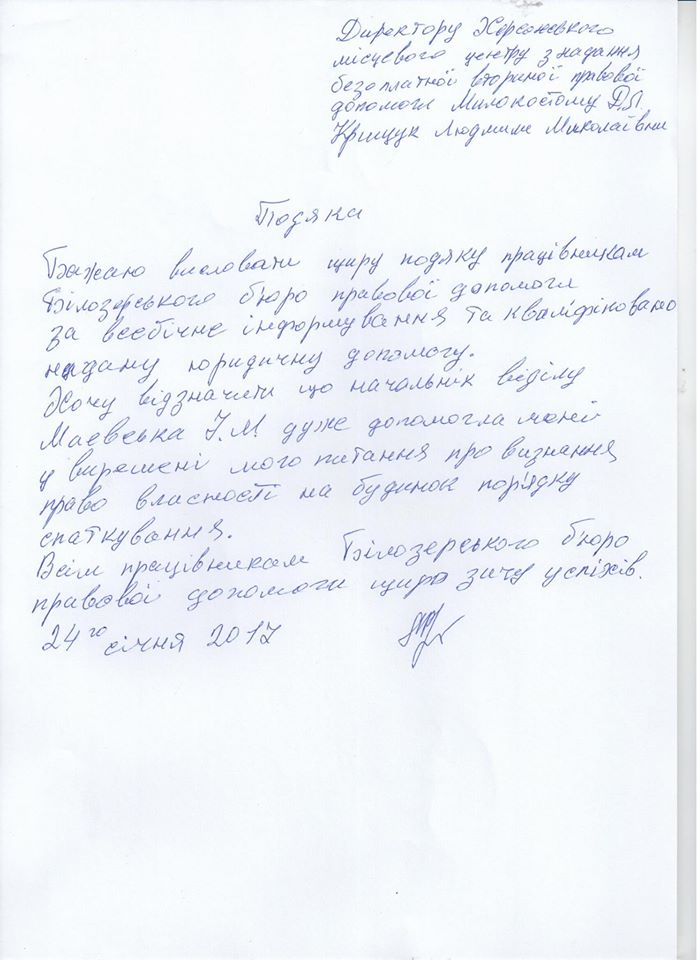 Директору Херсонського
місцевого центру з надання
безоплатної вториної правової
допомоги Милокостому Д.Л.
Крищук Людмили Миколаївни
Подяка
Бажаю висловати щиру подяку працівникам
Білозерського бюро правової допомоги
за всебічне інформування та кваліфіковано
надану юридичну допомогу.
Хочу відзначити що начальнік відділу
Маєвська І.М. дуже допомогла мені
у вирешені мого питання про визнання
право власності на будинок порядку
спаткування.
Всім працівникам Білозерського бюро
правової допомоги щиро зичу успіхів.
24го січня 2017